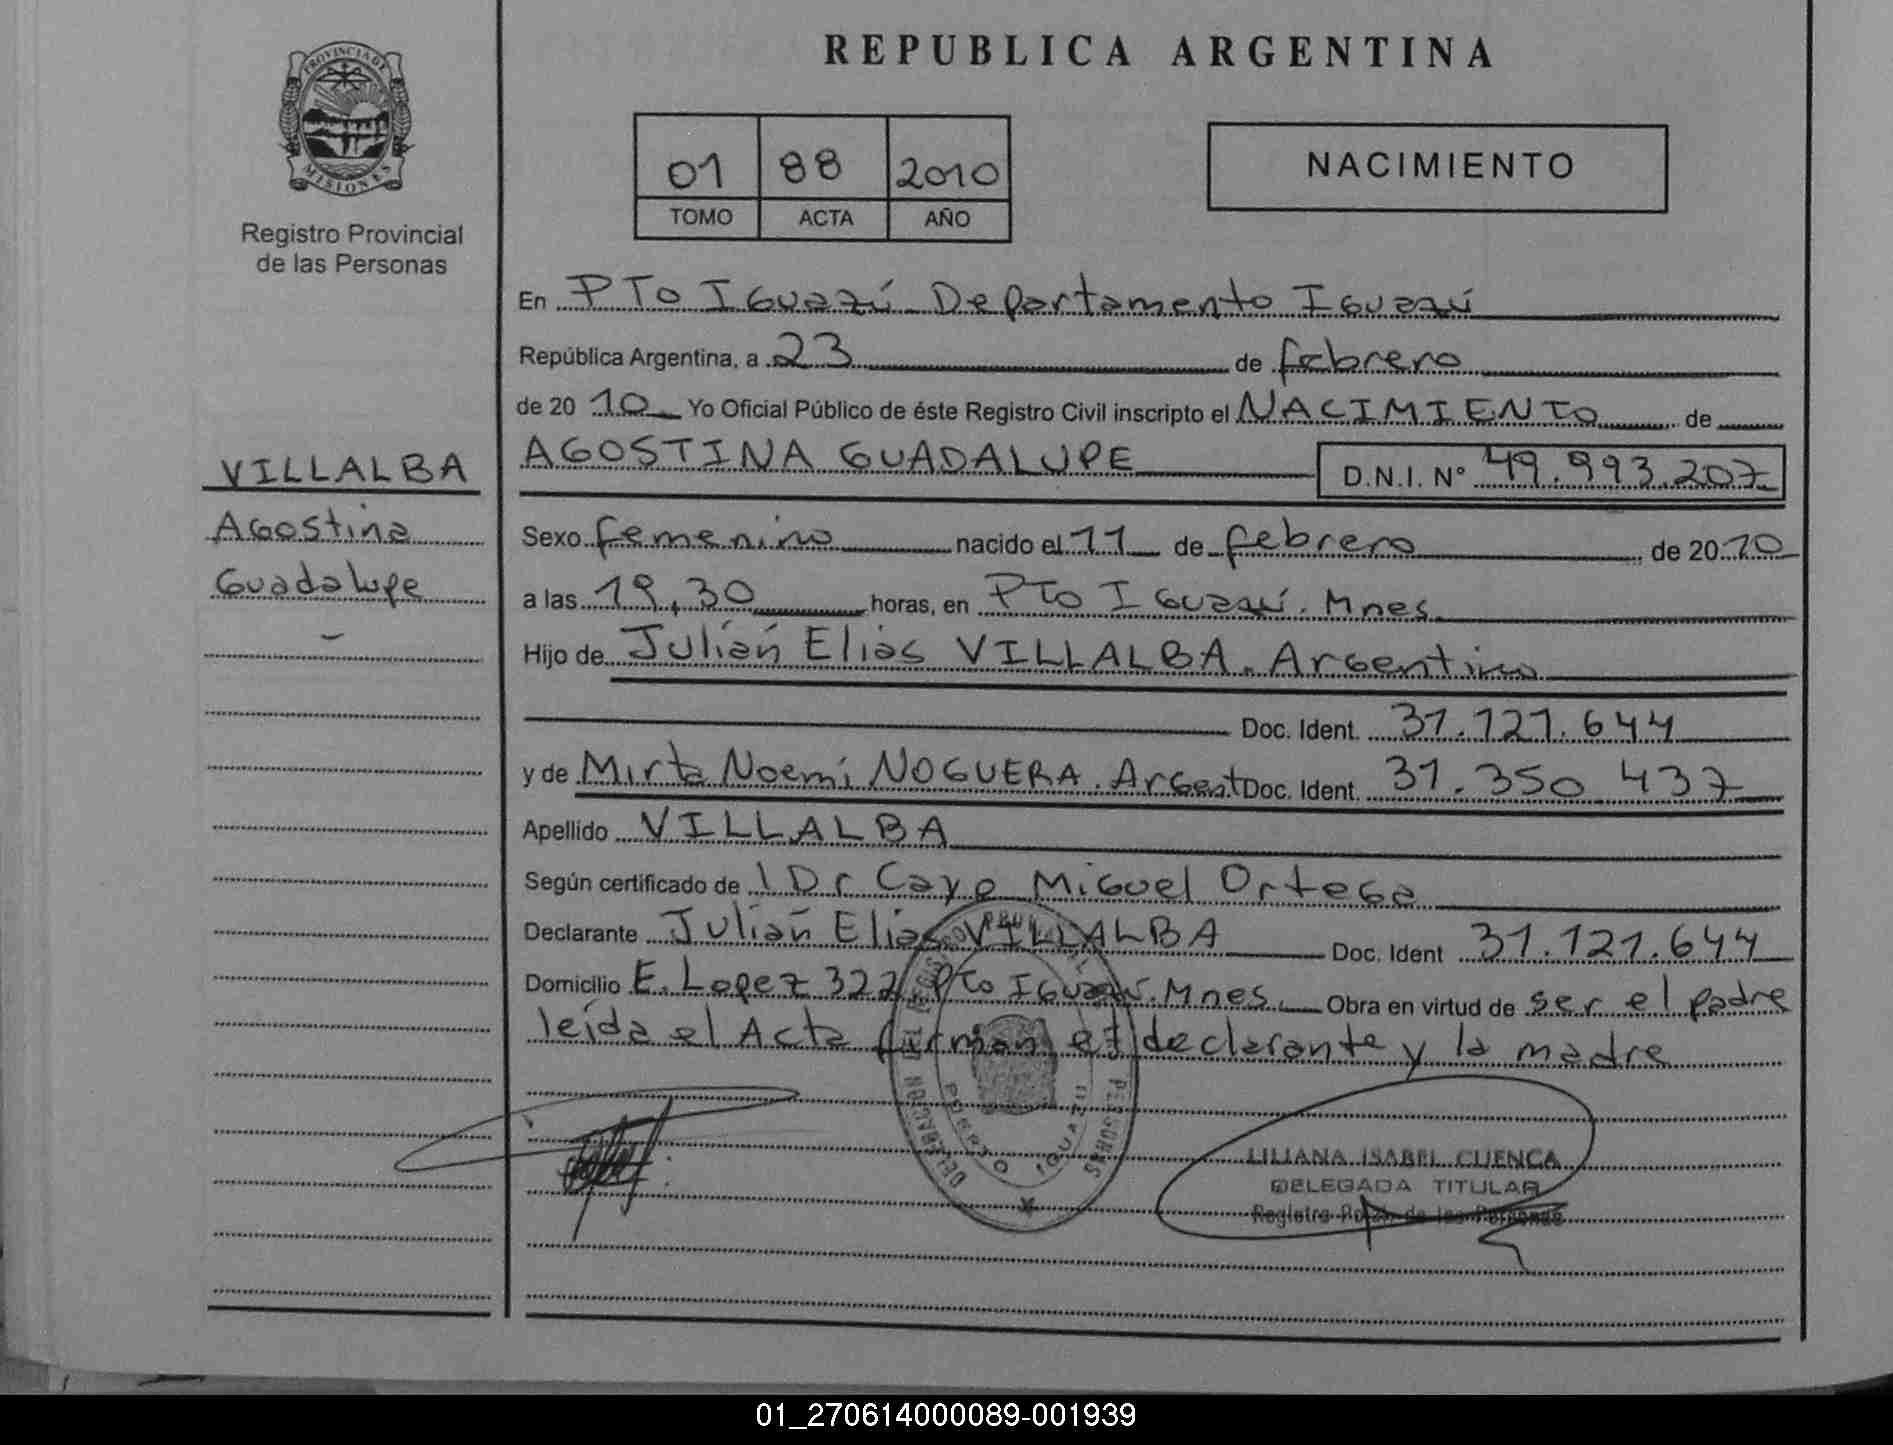 PROVINCIA DE
MISIONES
Registro Provincial
de las Personas
VILLALBA
Agostina
Guadalupe
REPUBLICA ARGENTINA
01 88 2010
TOMO ACTA AÑO
NACIMIENTO
En PTO IGuazú Departamento IGuazú
República Argentina, a 23 de febrero
de 20 10 Yo Oficial Público de éste Registro Civil inscripto el NACIMIENTO de
AGOSTINA GUADALUPE D.N.I. N° 49.993.207
Sexo femenino nacido el 11 de febrero de 20 10
a las 19,30 horas, en PTO IGuazú. Mnes
Hijo de Julián Elias VILLALBA. Argentino
Doc. Ident. 31.121.644
y de Mirta Noemí NOGUERA. Argent Doc. Ident. 31.350.437
Apellido VILLALBA
Según certificado de l Dr Cayo Miguel Ortega
Declarante Julián Elias VILLALBA Doc. Ident 31.121.644
Domicilio E. Lopez 322 Pto IGuazú. Mnes. Obra en virtud de ser el padre
leída el Acta firman el declarante y la madre
DELEGACION
PERSONAS
PUERTO IGUAZU
LILIANA ISABEL CUENCA
DELEGADA TITULAR
Registro de las Personas
01_270614000089-001939